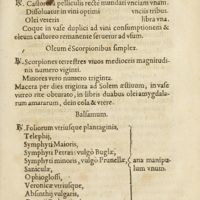 ℞. Castorei pelliculis recte mundati vnciam vnam.
Dissoluatur in vini optimi vnciis tribus.
Olei veteris libra vna.
Coque in vase duplici ad vini consumptionem &
oleum castoreo remanente seruetur ad vsum.
Oleum è Scorpionibus simplex.
℞. Scorpiones terrestres viuos mediocris magnitudinis numero viginti.
Minores vero numero triginta.
Macera per dies triginta ad Solem æstiuum, in vase
vitreo rite obturato, in libris duabus olei amygdalarum amararum, dein cola & vtere.
Balsamum.
℞. Foliorum vtriusque plantaginis,
Telephij,
Symphyti Maioris,
Symphyti Petræi: vulgò Buglæ,
Symphyti minoris, vulgò Prunellæ,
Saniculæ,
Ophioglossi,
Veronicæ vtriusque,
Absinthij vulgaris,
ana manipulum vnum.